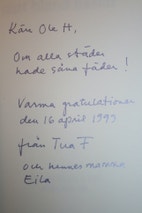 Käre Ole H,
Om alla städer
hade såna fäder!
Varma gratulationer
den 16 april 1997
från Tua F
och hennes mamma
Eila